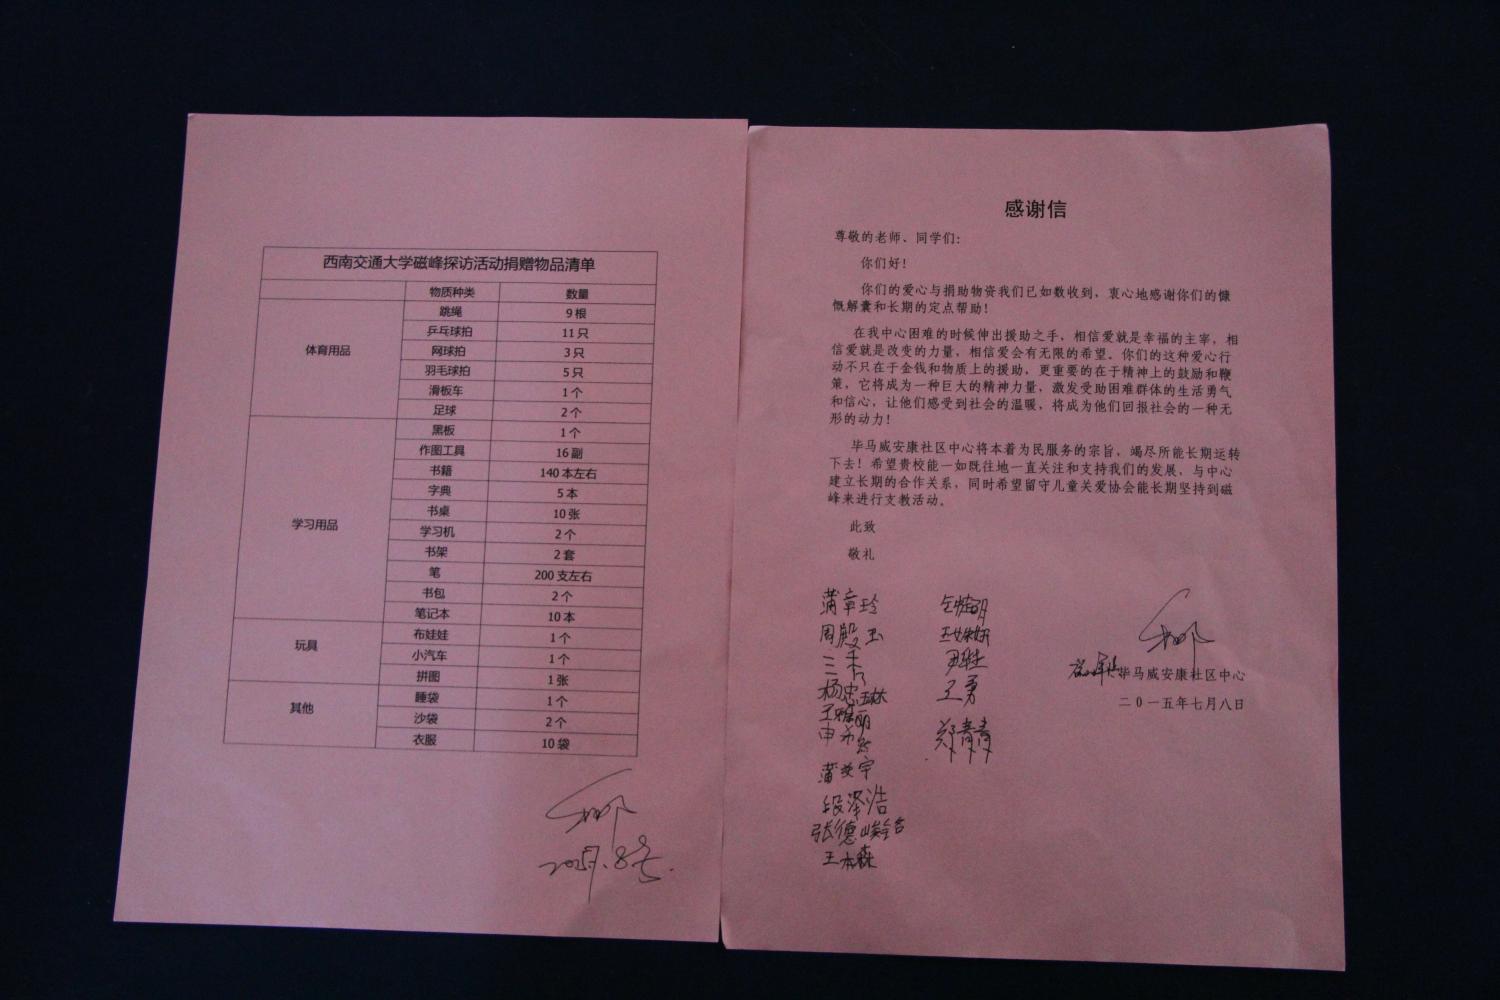 西南交通大学磁峰探访活动捐赠物品清单
物质种类 数量
体育用品
跳绳 9根
乒乓球拍 11只
网球拍 3只
羽毛球拍 5只
滑板车 1个
足球 2个
学习用品
黑板 1个
作图工具 16副
书籍 140本左右
字典 5本
书桌 10张
学习机 2个
书架 2套
笔 200支左右
书包 2个
笔记本 10本
玩具
布娃娃 1个
小汽车 1个
拼图 1张
其他
睡袋 1个
沙袋 2个
衣服 10袋
感谢信
尊敬的老师、同学们：
你们好！
你们的爱心与捐助物资我们已如数收到，衷心地感谢你们的慷
慨解囊和长期的定点帮助！
在我中心困难的时候伸出援助之手，相信爱就是幸福的主宰，相
信爱就是改变的力量，相信爱会有无限的希望。你们的这种爱心行
动不只在于金钱和物质上的援助，更重要的在于精神上的鼓励和鞭
策，它将成为一种巨大的精神力量，激发受助困难群体的生活勇气
和信心，让他们感受到社会的温暖，将成为他们回报社会的一种无
形的动力！
毕马威安康社区中心将本着为民服务的宗旨，竭尽所能长期运转
下去！希望贵校能一如既往地一直关注和支持我们的发展，与中心
建立长期的合作关系，同时希望留守儿童关爱协会能长期坚持到磁
峰来进行支教活动。
此致
敬礼
蒲章玲
周殿玉
段泽浩
王本森
王勇
郑青青
毕马威安康社区中心
二0一五年七月八日